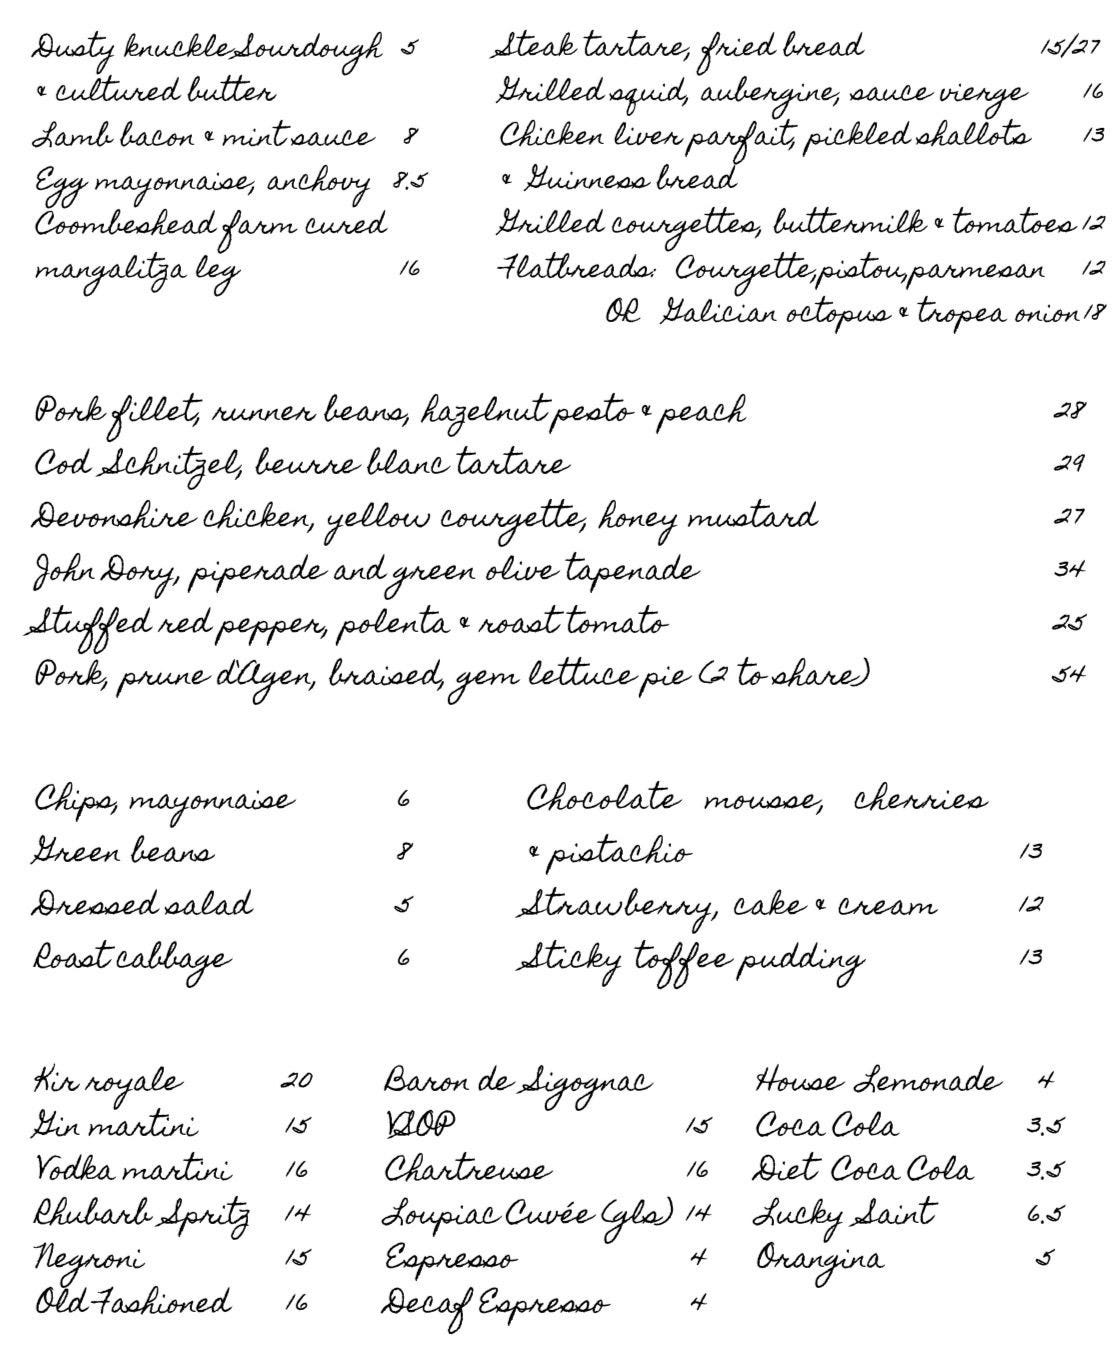 Dusty knuckle Sourdough 5
& cultured butter
Lamb bacon & mint sauce 8
Egg mayonnaise, anchovy 8.5
Coombeshead farm cured
mangalitza leg 16
Steak tartare, fried bread 15/27
Grilled squid, aubergine, sauce vierge 16
Chicken liver parfait, pickled shallots 13
& Guinness bread
Grilled courgettes, buttermilk & tomatoes 12
Flatbreads: Courgette, pistou, parmesan 12
OR Galician octopus & tropea onion 18
Pork fillet, runner beans, hazelnut pesto & peach 28
Cod Schnitzel, beurre blanc tartare 29
Devonshire chicken, yellow courgette, honey mustard 27
John Dory, piperade and green olive tapenade 34
Stuffed red pepper, polenta & roast tomato 25
Pork, prune d'Agen, braised, gem lettuce pie (2 to share) 54
Chips, mayonnaise 6
Green beans 8
Dressed salad 5
Roast cabbage 6
Chocolate mousse, cherries
& pistachio 13
Strawberry, cake & cream 12
Sticky toffee pudding 13
Kir royale 20
Gin martini 15
Vodka martini 16
Rhubarb Spritz 14
Negroni 15
Old Fashioned 16
Baron de Sigognac
VSOP 15
Chartreuse 16
Loupiac Cuvée (gls) 14
Espresso 4
Decaf Espresso 4
House Lemonade 4
Coca Cola 3.5
Diet Coca Cola 3.5
Lucky Saint 6.5
Orangina 5